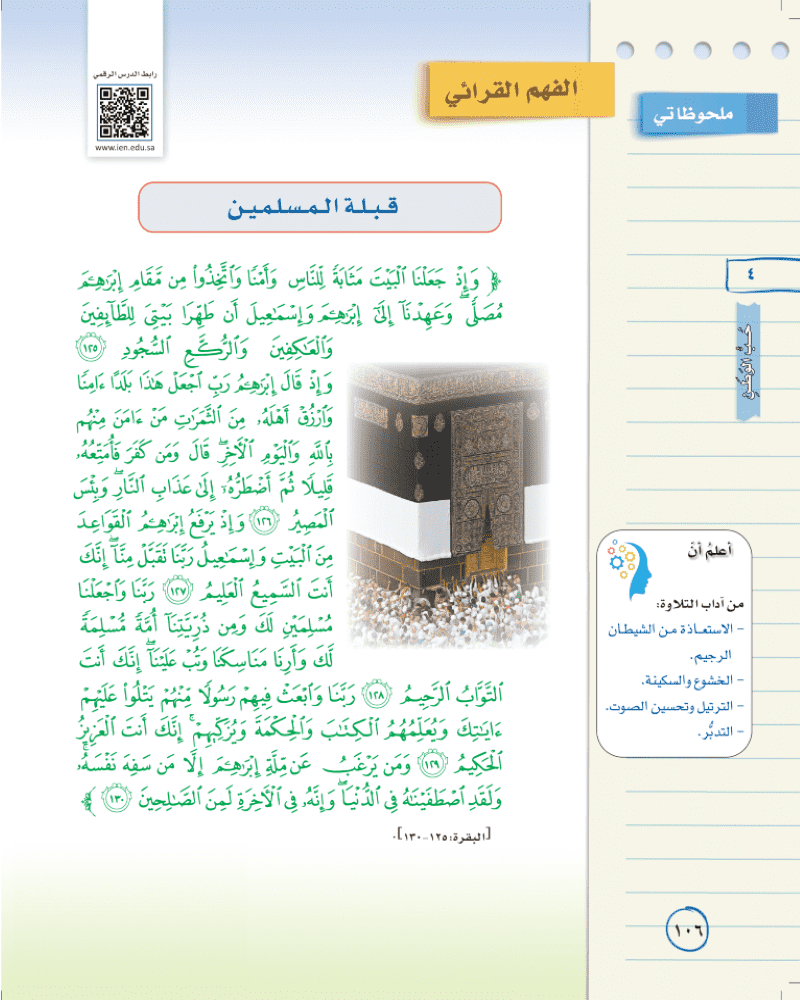 رابط الدرس الرقمي
www.ien.edu.sa
الفهم القرائي
ملحوظاتي
قبلة المسلمين
﴿ وَإِذْ جَعَلْنَا ٱلْبَيْتَ مَثَابَةً لِّلنَّاسِ وَأَمْنًا وَٱتَّخِذُوا۟ مِن مَّقَامِ إِبْرَٰهِـۧمَ
مُصَلًّى ۖ وَعَهِدْنَآ إِلَىٰٓ إِبْرَٰهِـۧمَ وَإِسْمَٰعِيلَ أَن طَهِّرَا بَيْتِىَ لِلطَّآئِفِينَ
وَٱلْعَٰكِفِينَ وَٱلرُّكَّعِ ٱلسُّجُودِ ١٢٥
وَإِذْ قَالَ إِبْرَٰهِـۧمُ رَبِّ ٱجْعَلْ هَٰذَا بَلَدًا ءَامِنًا
وَٱرْزُقْ أَهْلَهُۥ مِنَ ٱلثَّمَرَٰتِ مَنْ ءَامَنَ مِنْهُم
بِٱللَّهِ وَٱلْيَوْمِ ٱلْءَاخِرِ ۖ قَالَ وَمَن كَفَرَ فَأُمَتِّعُهُۥ
قَلِيلًا ثُمَّ أَضْطَرُّهُۥٓ إِلَىٰ عَذَابِ ٱلنَّارِ ۖ وَبِئْسَ
ٱلْمَصِيرُ ١٢٦ وَإِذْ يَرْفَعُ إِبْرَٰهِـۧمُ ٱلْقَوَاعِدَ
مِنَ ٱلْبَيْتِ وَإِسْمَٰعِيلُ رَبَّنَا تَقَبَّلْ مِنَّآ ۖ إِنَّكَ
أَنتَ ٱلسَّمِيعُ ٱلْعَلِيمُ ١٢٧ رَبَّنَا وَٱجْعَلْنَا
مُسْلِمَيْنِ لَكَ وَمِن ذُرِّيَّتِنَآ أُمَّةً مُّسْلِمَةً
لَّكَ وَأَرِنَا مَنَاسِكَنَا وَتُبْ عَلَيْنَآ ۖ إِنَّكَ أَنتَ
ٱلتَّوَّابُ ٱلرَّحِيمُ ١٢٨ رَبَّنَا وَٱبْعَثْ فِيهِمْ رَسُولًا مِّنْهُمْ يَتْلُوا۟ عَلَيْهِمْ
ءَايَٰتِكَ وَيُعَلِّمُهُمُ ٱلْكِتَٰبَ وَٱلْحِكْمَةَ وَيُزَكِّيهِمْ ۚ إِنَّكَ أَنتَ ٱلْعَزِيزُ
ٱلْحَكِيمُ ١٢٩ وَمَن يَرْغَبُ عَن مِّلَّةِ إِبْرَٰهِـۧمَ إِلَّا مَن سَفِهَ نَفْسَهُۥ ۚ
وَلَقَدِ ٱصْطَفَيْنَٰهُ فِى ٱلدُّنْيَا ۖ وَإِنَّهُۥ فِى ٱلْءَاخِرَةِ لَمِنَ ٱلصَّٰلِحِينَ ١٣٠ ﴾
[البقرة: ١٢٥-١٣٠].
٤
حُبُّ الوَطَنِ
أعلمُ أنَّ
من آداب التلاوة:
- الاستعاذة من الشيطان
الرجيم.
- الخشوع والسكينة.
- الترتيل وتحسين الصوت.
- التدبُّر.
١٠٦